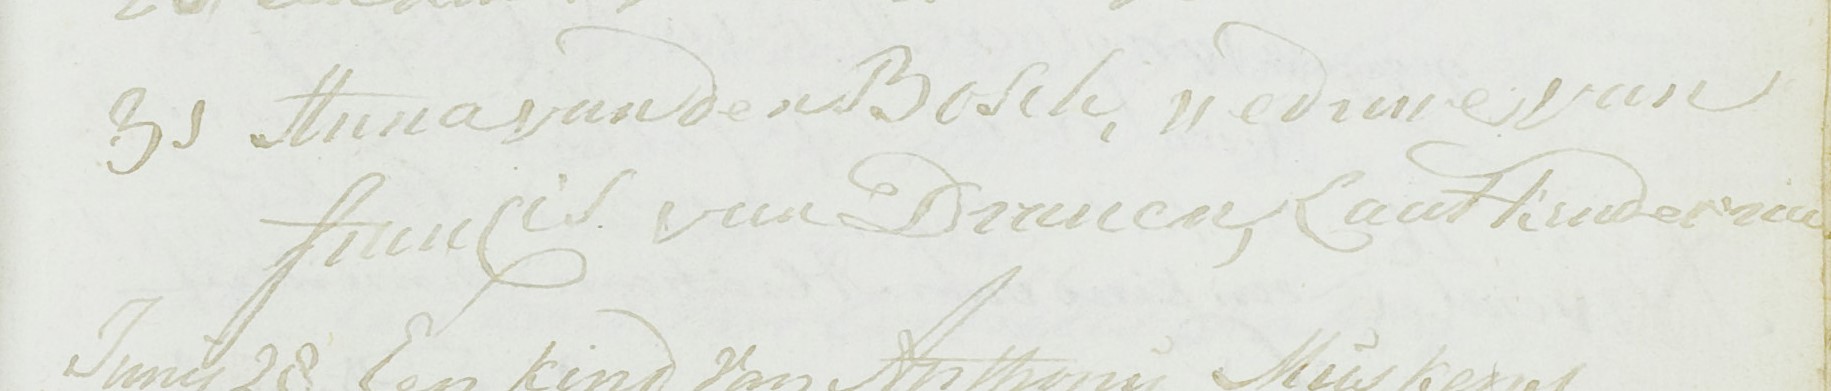 31 Anna van den Bosch, weduwe van
francis van Drunen, Laat kinderen na
Junij 28 Een kind van Anthony